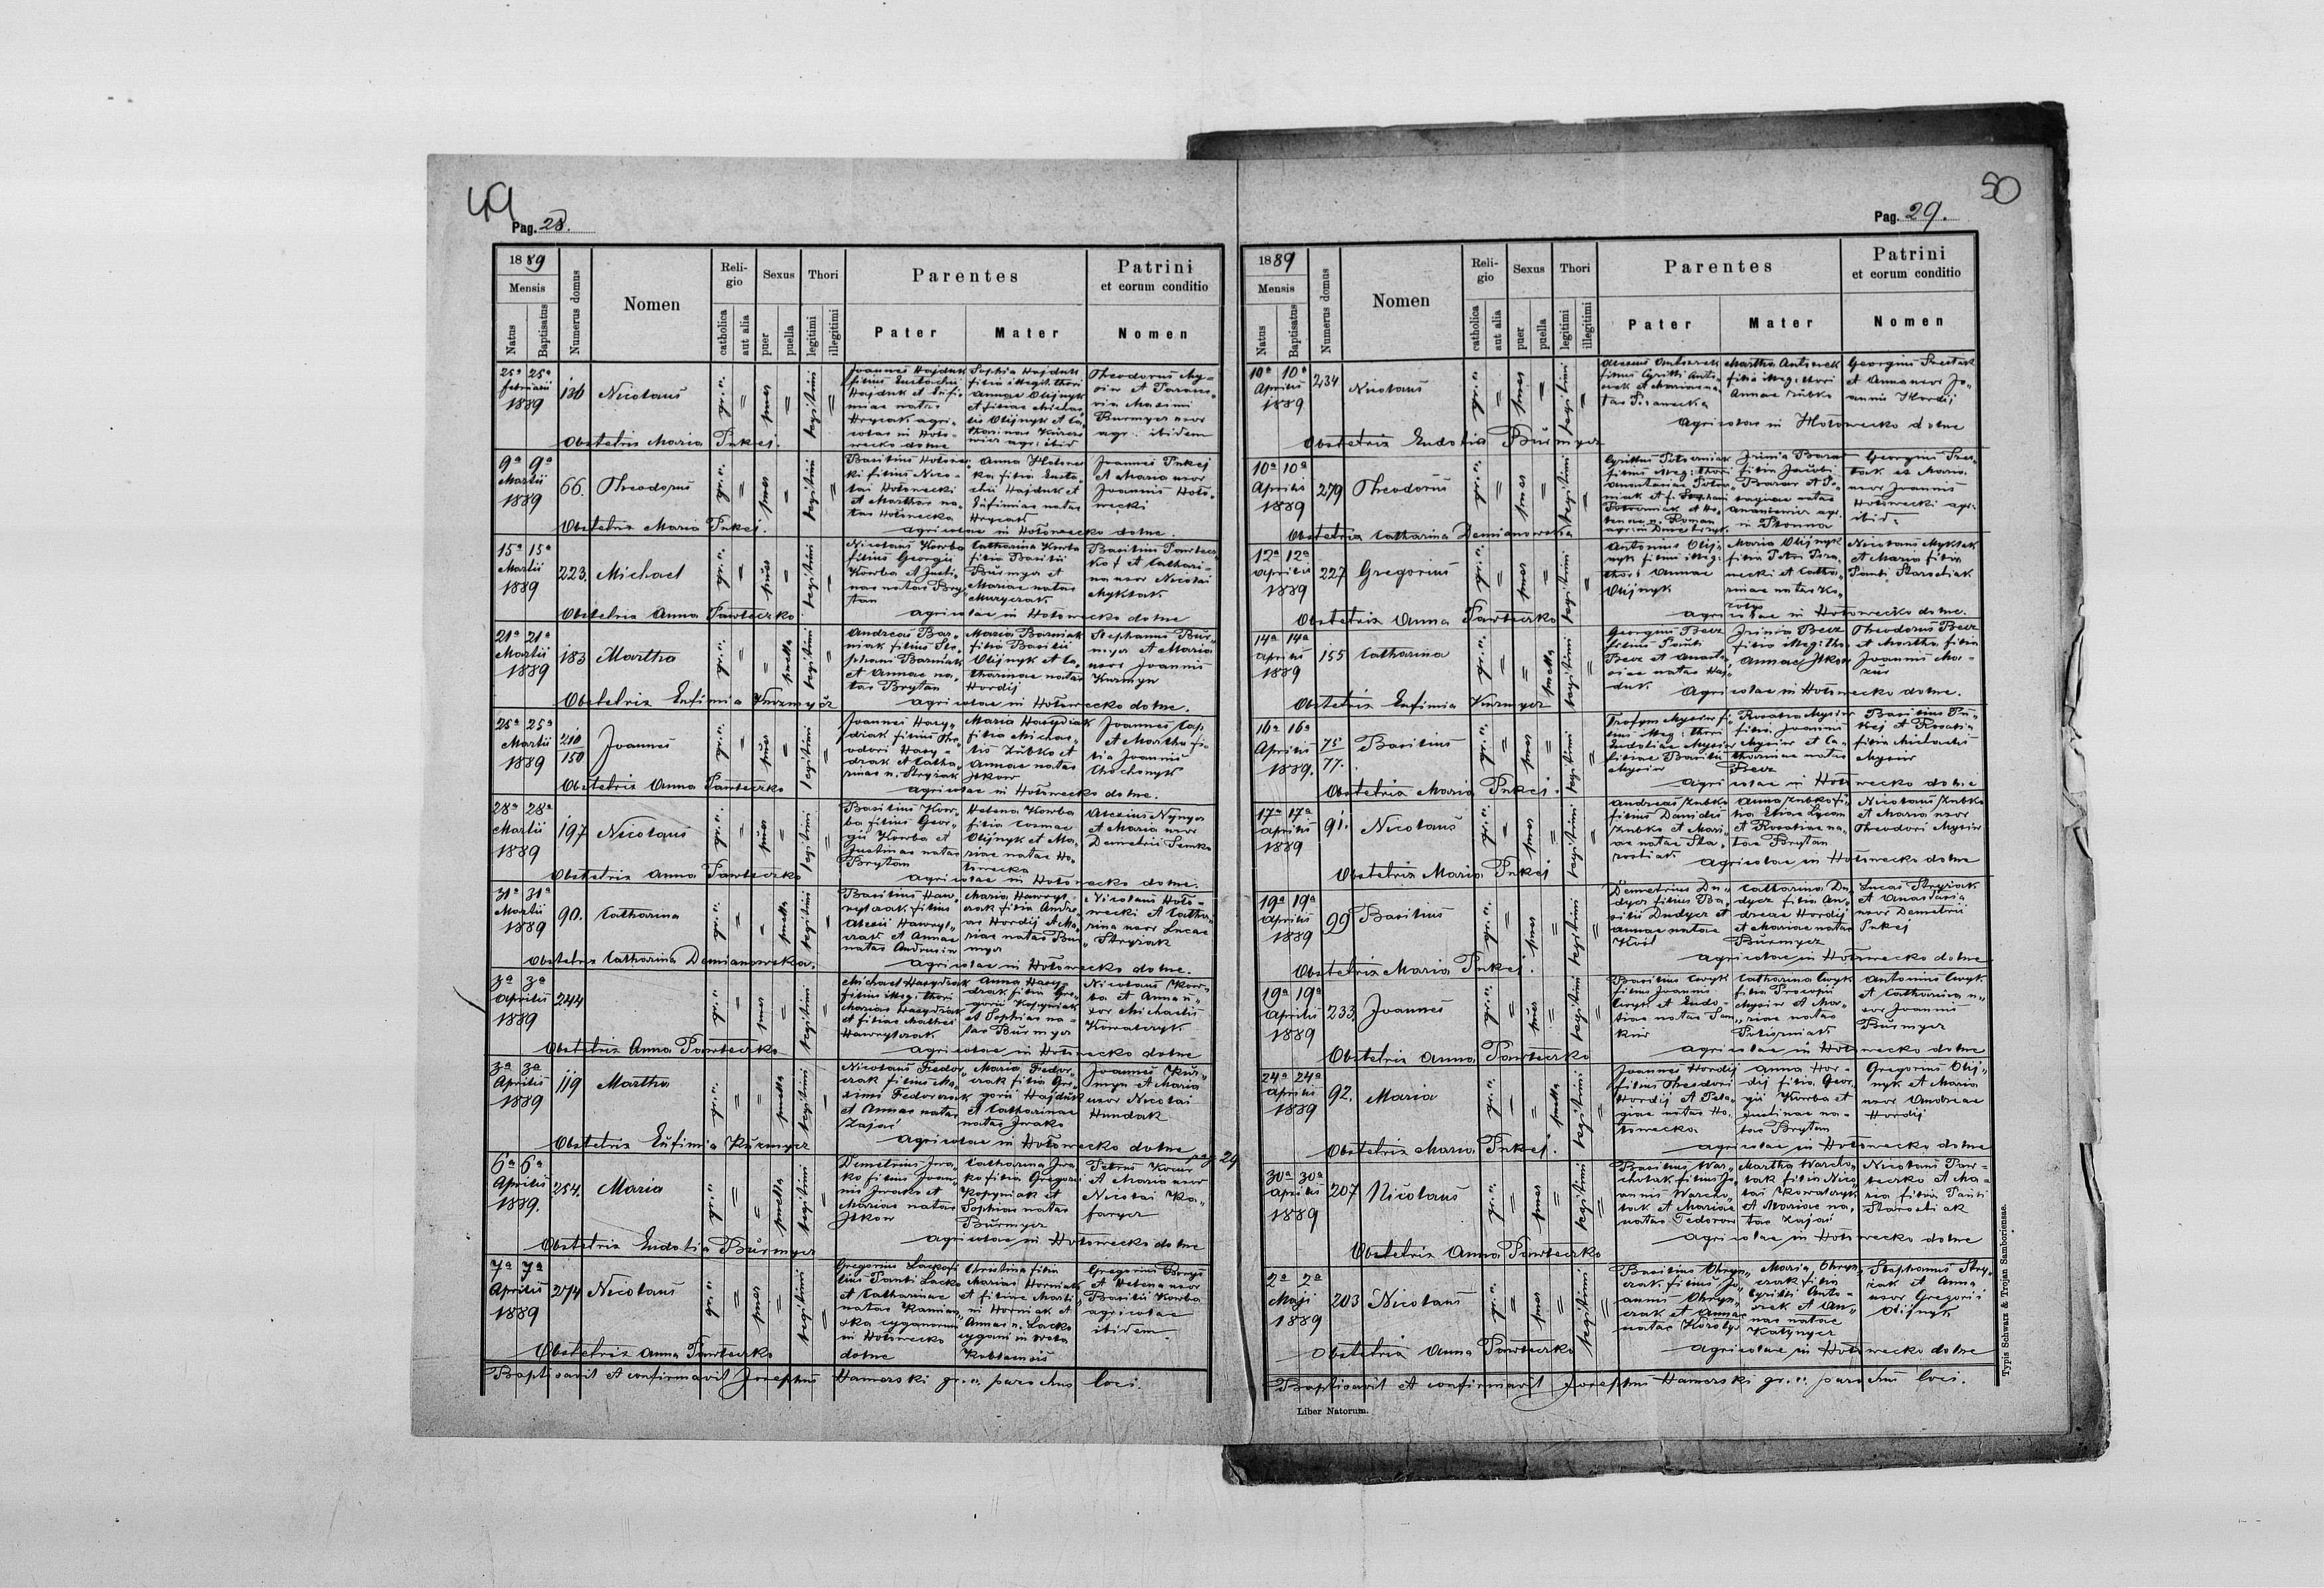 49
Pag. 28.
1889
Mensis
Natus
Baptisatus
Numerus domus
Nomen
Religio
catholica
aut alia
Sexus
puer
puella
Thori
legitimi
illegitimi
Parentes
Pater
Mater
Patrini
et eorum conditio
Nomen
25a 25a
februarii
1889
136 Nicolaus
gr. c. puer legitimi
Joannes Hajduk
filius Eustachii
Hajduk et Eufi-
miae natae
Hrycak agri-
colae in Hoło-
wecko dolne
Sophia Hajduk
filia illegit. thori
Annae Olijnyk
et filiae Michae-
lis Olijnyk et Ca-
tharinae
agr: ibid
Theodorus
et
via Maximi
Burmycz uxor
agr: ibidem
Obstetrix Maria Pukej.
9a 9a
Martii
1889
66. Theodorus
gr. c. puer legitimi
Basilius Hołowec-
ki filius Nico-
lai Hołowecki
et Marthae na-
tae Hołowecka
Anna Hołowec-
ka filia Eusta-
chii Hajduk et
Eufimiae natae
Hrycak
Joannes Pukej
et Maria uxor
Joannis Hoło-
wecki
Obstetrix Maria Pukej.
agricolae in Hołowecko dolne.
15a 15a
Martii
1889
223. Michael
gr. c. puer legitimi
Nicolaus Korba
filius Georgii
Korba et Justi-
nae natae Bry-
tan
Catharina Korba
filia Basilii
Burmycz et
Mariae natae
Basilius Pawlecz-
ko et Cathari-
na uxor Nicolai
Myktak
Obstetrix Anna Pawleczko
agricolae in Hołowecko dolne
21a 21a
Martii
1889
183 Martha
gr. c. puella legitimi
Andreas Bar-
niak filius Ste-
phani Barniak
et Annae na-
tae Brytan
Maria Barniak
filia Basilii
Olijnyk et Ca-
tharinae natae
Hordij
Stephanus Bur-
mycz et Maria
uxor Joannis
Obstetrix Eufimia Kuzmycz
agricolae in Hołowecko dolne.
25a 25a
Martii
1889
210
150
Joannes
gr. c. puer legitimi
Joannes Hasy-
dziak filius The-
odori Hasy-
dziak et Catha-
rinae n. Stryiak
Maria Hasydziak
filia Michae-
lis Zubko et
Annae natae
Ilkow
Joannes Cap
et Martha fi-
lia Joannis
Obstetrix Anna Pawleczko
agricolae in Hołowecko dolne.
28a 28a
Martii
1889
197 Nicolaus
gr. c. puer legitimi
Basilius Kor-
ba filius Geor-
gii Korba et
Justinae natae
Brytan
Helena Korba
filia Cosmae
Olijnyk et Ma-
riae natae Ho-
łowecka
Alexius
et Maria uxor
Demetrii
Obstetrix Anna Pawleczko
agricolae in Hołowecko dolne.
31a 31a
Martii
1889
90. Catharina
gr. c. puella legitimi
Basilius Haw-
rylczak filius
Alexii Hawryl-
czak et Annae
natae
Maria Hawryl-
czak filia Andre-
ae Hordij et Ma-
riae natae Bur-
mycz
Nicolaus Hoło-
wecki et Catha-
rina uxor Lucae
Stryiak
Obstetrix Catharina Demianowska.
agricolae in Hołowecko dolne.
3a 3a
Aprilis
1889
244
gr. c. puer legitimi
Michael Hasydziak
filius illeg. thori
Mariae Hasydziak
et filiae Mathei
Hawrylczak
Anna Hasy-
dziak filia Gre-
gorii Kopyniak
et Sophiae na-
tae Burmycz
Nicolaus Kor-
ba et Anna u-
xor Michaelis
Kowalczyk
Obstetrix Anna Pawleczko
agricolae in Hołowecko dolne
3a 3a
Aprilis
1889
119 Martha
gr. c. puella legitimi
Nicolaus Fedor-
czak filius Ma-
ximi Fedorczak
et Annae natae
Zajać
Maria Fedor-
czak filia Gre-
gorii Hajduk
et Catharinae
natae Iwasko
Joannes
et Maria
uxor Nicolai
Hundak
Obstetrix Eufimia Kuzmycz
agricolae in Hołowecko dolne
pag 24
6a 6a
Aprilis
1889.
254. Maria
gr. c. puella legitimi
Demetrius Iwa-
ko filius Joan-
nis Iwako et
Mariae natae
Ilkow
Catharina Iwa-
ko filia Gregorii
Kopyniak et
Sophiae natae
Burmycz
Petrus
et Maria uxor
Nicolai
Obstetrix Eudolia Burmycz
agricolae in Hołowecko dolne
7a 7a
Aprilis
1889
274 Nicolaus
gr. c. puer legitimi
Gregorius Lacko fi-
lius Pauli Lacko
et Catharinae
natae
cyganorum
in Hołowecko
dolne
Christina filia
Mariae Horniak
et filiae Marti-
ni Horniak et
Annae n. Lacko
cygani in
Gregorius Borys
et Helena uxor
Basilii Korba
agricolae
ibidem.
Obstetrix Anna Pawleczko
Baptisavit et confirmavit Josephus Hamerski gr. c. parochus loci.
50
Pag. 29.
1889
Mensis
Natus
Baptisatus
Numerus domus
Nomen
Religio
catholica
aut alia
Sexus
puer
puella
Thori
legitimi
illegitimi
Parentes
Pater
Mater
Patrini
et eorum conditio
Nomen
10a 10a
Aprilis
1889
234 Nicolaus
gr. c. puer legitimi
filius Cyrilli Anto-
Martha
filia illeg. thori
Annae Zubko
Georgius
et Anna uxor Jo-
annis Hordij
agricolae in Hołowecko dolne
Obstetrix Eudolia Burmycz
10a 10a
Aprilis
1889
279 Theodorus
gr. c. puer legitimi
filius illeg: thori
Irinia Baran
filia Jacobi
Baran et Pe-
lagiae natae
in Płonna
Georgius
et Maria
uxor Joannis
Hołowecki agr:
ibid:
Obstetrix Catharina Demianowska
12a 12a
Aprilis
1889
227 Gregorius
gr. c. puer legitimi
Antonius Olij-
nyk filius illeg:
thori Annae
Olijnyk
Maria Olijnyk
filia Petri
Nicolaus Myktak
et Maria filia
Pauli Starostiak
agricolae in Hołowecko dolne.
Obstetrix Anna Pawleczko
14a 14a
Aprilis
1889
155 Catharina
gr. c. puella legitimi
Georgius Becz
filius Pauli
Becz et Anasta-
siae natae Haj-
duk
Irinia Becz
filia illeg. tho.
Annae Ilkow
Theodorus Becz
et Martha filia
Joannis Ma-
zur
Agricolae in Hołowecko dolne.
Obstetrix Eufimia Kuzmycz
16a 16a
Aprilis
1889.
75
77.
Basilius
gr. c. puer legitimi
Trofym Mysiw fi-
lius illeg: thori
Eudoliae Mysiw
filiae Basilii
Mysiw
Rosalia Mysiw
filia Joannis
Mysiw et Ca-
tharinae natae
Becz
Basilius Pu-
kej et Rosalia
filia Michaelis
Mysiw
Obstetrix Maria Pukej.
Agricolae in Hołowecko dolne
17a 17a
Aprilis
1889
91. Nicolaus
gr. c. puer legitimi
Andreas Zubko
filius Danidis
Zubko et Mari-
ae natae Sta-
rostiak
Anna Zubko fi-
lia Eliae
et Rosaliae na-
tae Brytan
Nicolaus Zubko
et Maria uxor
Theodori Mysiw
agricolae in Hołowecko dolne
Obstetrix Maria Pukej
19a 19a
Aprilis
1889
99 Basilius
gr. c. puer legitimi
Demetrius Du-
dycz filius Ba-
silii Dudycz et
Annae natae
Catharina Du-
dycz filia An-
dreae Hordij
et Mariae natae
Burmycz
Lucas Stryiak
et Anastasia
uxor Demetrii
Pukej
agricolae in Hołowecko dolne
Obstetrix Maria Pukej.
19a 19a
Aprilis
1889
233. Joannes
gr. c. puer legitimi
Basilius Cwyk
filius Joannis
Cwyk et Eudo-
liae natae
Catharina Cwyk
filia Procopii
Mysiw et Ma-
riae natae
Antonius Cwyk
et Catharina u-
xor Joannis
Burmycz
agricolae in Hołowecko dolne
Obstetrix Anna Pawleczko
24a 24a
Aprilis
1889
92. Maria
gr. c. puella legitimi
Joannes Hordij
filius Theodori
Hordij et Pela-
giae natae Ho-
łowecka
Anna Hor-
dij filia Geor-
gii Korba et
Justinae na-
tae Brytan
Gregorius Olij-
nyk et Maria
uxor Andreae
Hordij
agricolae in Hołowecko dolne
Obstetrix Maria Pukej.
30a 30a
Aprilis
1889
207 Nicolaus
gr. c. puer legitimi
Basilius War-
cholak filius Jo-
annis Warcho-
lak et Mariae
natae Fedorow
Martha Warcho-
lak filia Nico-
lai Kowalczyk
et Mariae na-
tae Zajać
Nicolaus Paw-
leczko et Ma-
ria filia Pauli
Starostiak
agricolae in Hołowecko dolne
Obstetrix Anna Pawleczko
2a 2a
Maji
1889
203 Nicolaus
gr. c. puer legitimi
Basilius Chryn-
czak filius Jo-
annis Chryn-
czak et Annae
natae
Maria Chryn-
czak filia
Cyrilli Anto-
et An-
nae natae
Stephanus Stry-
iak et Anna
uxor Gregorii
Olijnyk
Obstetrix Anna Pawleczko
agricolae in Hołowecko dolne
Baptisavit et confirmavit Josephus Hamerski gr. c. parochus loci.
Liber Natorum.
Typis Schwarz & Trojan Samboriensae.